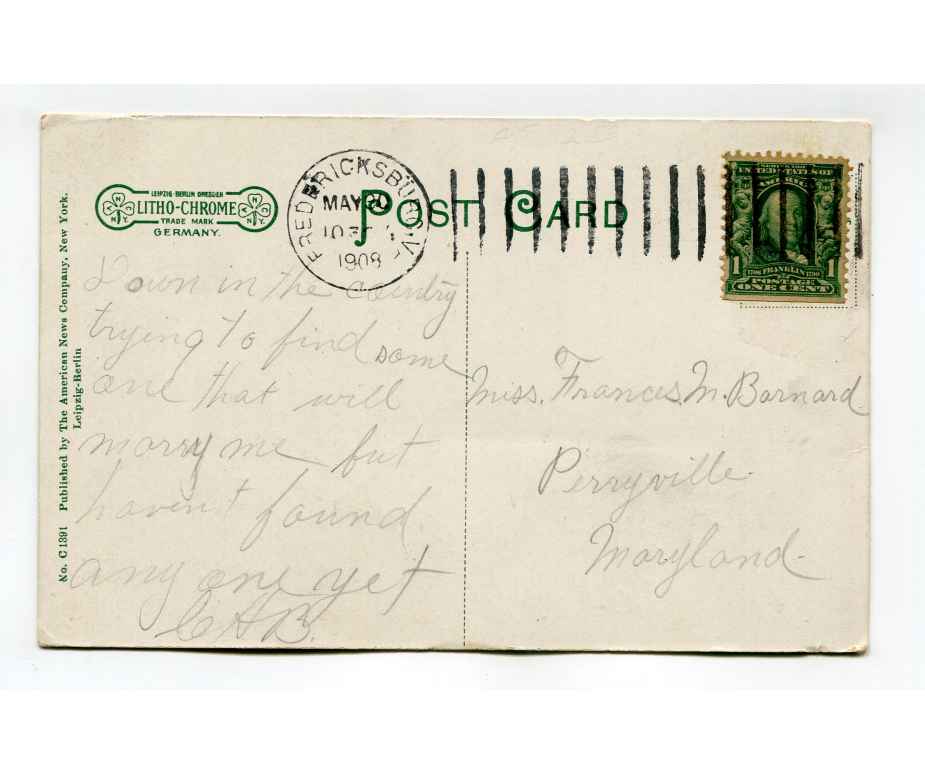 LEIPZIG-BERLIN DRESDEN
LITHO-CHROME
TRADE MARK
GERMANY.
POST CARD
FREDERICKSBURG, VA
MAY 20
1908
SERIES 1902
UNITED STATES OF
AMERICA
1 1790 FRANKLIN 1790 1
POSTAGE
ONE CENT
No. C 1391 Published by The American News Company, New York.
Leipzig-Berlin
Down in the country
trying to find some
one that will
marry me but
haven't found
any one yet
CAB.
Miss. Frances. M. Barnard
Perryville
Maryland-